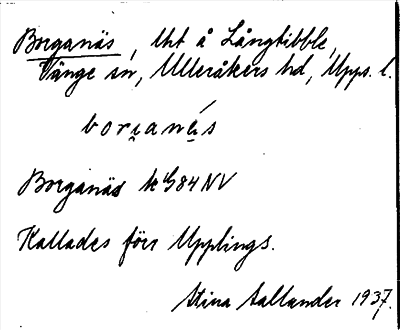 Borganäs, lht å Långtibble,
Vänge sn, Ulleråkers hd, Upps. l.
borianés
Borganäs k G84 NV
Kallades förr Upplings.
Stina Sallander 1937.